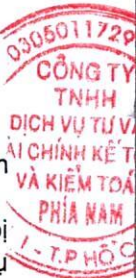 0305011729
CÔNG TY
TNHH
DỊCH VỤ TƯ V
ÀI CHÍNH KẾ T
VÀ KIỂM TOÁ
PHÍA NAM
- T.P HỒ C